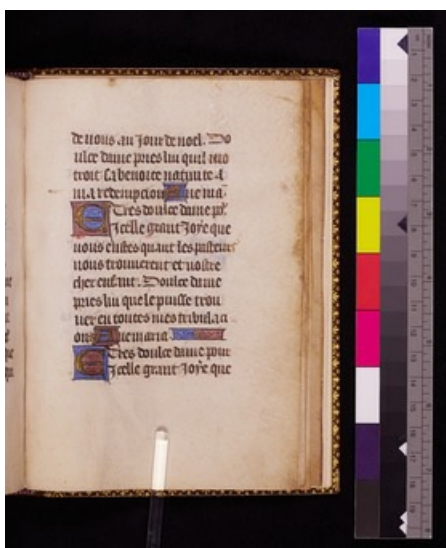 de nous. au Jour de noel. Do
ulce dame pries lui quil mo
troit sa benoite natiuite. a
m.a redempcion Aue ma.
E Tres doulce dame po2
Jcelle grant Joye que
uous eustes quant les pasteurs
uous trouuerent et uostre
cher enfant. Doulce dame
pries lui que le puisse trou
uer en toutes mes tribulaci
ons Aue maria
E Tres doulce dame pour
Jcelle grant Joye que